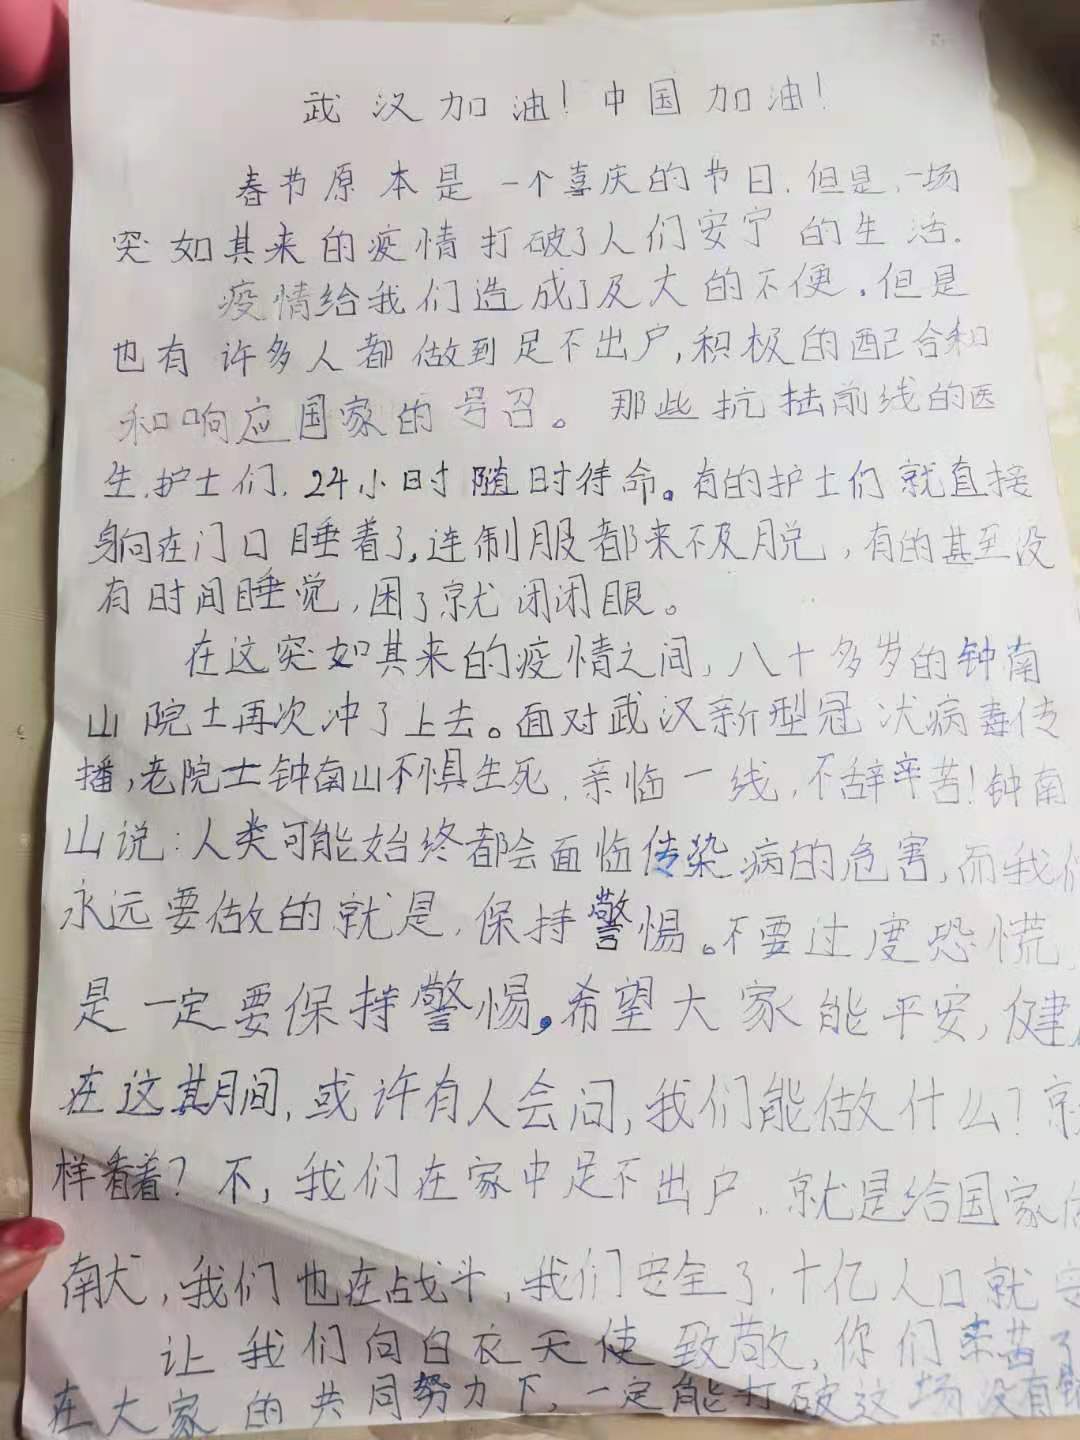 武汉加油！中国加油！
春节原本是一个喜庆的节日.但是,一场
突如其来的疫情打破了人们安宁的生活.
疫情给我们造成了及大的不便.但是
也有许多人都做到足不出户,积极的配合和
和响应国家的号召。那些抗击前线的医
生.护士们.24小时随时待命。有的护士们就直接
躺在门口睡着了,连制服都来不及脱,有的甚至没
有时间睡觉,困了就闭闭眼。
在这突如其来的疫情之间,八十多岁的钟南
山院士再次冲了上去。面对武汉新型冠状病毒传
播,老院士钟南山不惧生死.亲临一线,不辞辛苦!钟南
山说:人类可能始终都会面临传染病的危害,而我们
永远要做的就是,保持警惕。不要过度恐慌,
是一定要保持警惕。希望大家能平安,健
在这期间,或许有人会问,我们能做什么?就
样看着?不,我们在家中足不出户.就是给国家
献,我们也在战斗,我们安全了.十亿人口就安
让我们向白衣天使致敬,你们辛苦了
在大家的共同努力下,一定能打破这场没有